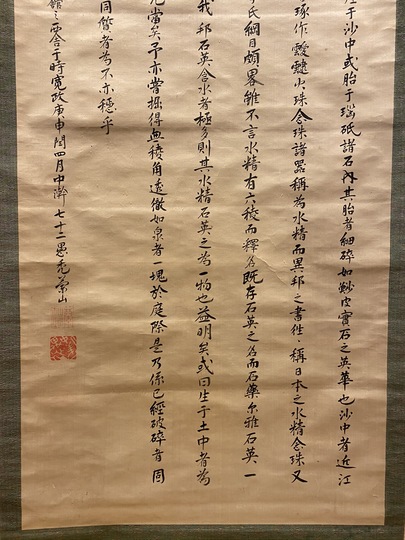 産于沙中或胎于瑙砥諸石内其胎者細碎如魦皮實石之英華也沙中者近江
琢作靉靆火珠念珠諸器稱為水精而異邦之書往〻稱日本之水精念珠又
氏綱目頗畧雖不言水精有六稜而釋名既存石英之名而石藥尓雅石英一
我邦石英含水者極多則其水精石英之為一物也益明矣或曰生于土中者為
當矣予亦嘗掘得無稜角遠徹如泉者一塊於庭際是乃係已經破碎者固
同贋者為不亦穩乎
館之西舎時寛政庚申閏四月中澣七十二愚禿山